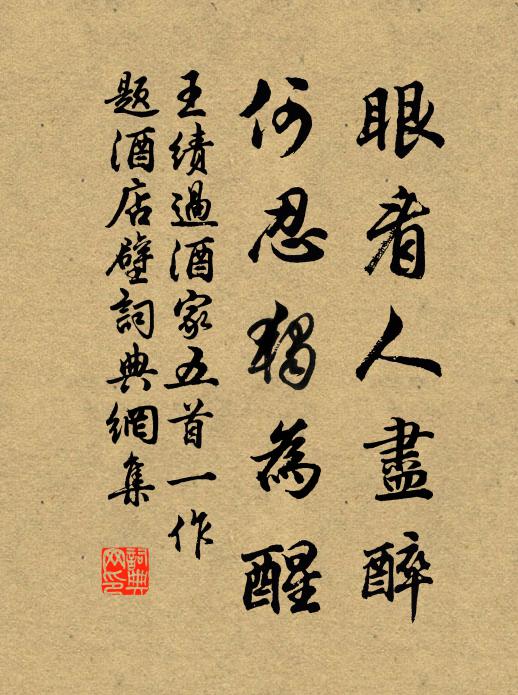 眼看人盡醉
何忍獨為醒
王績過酒家五首一作
題酒店壁詞典網集
詞典
网印